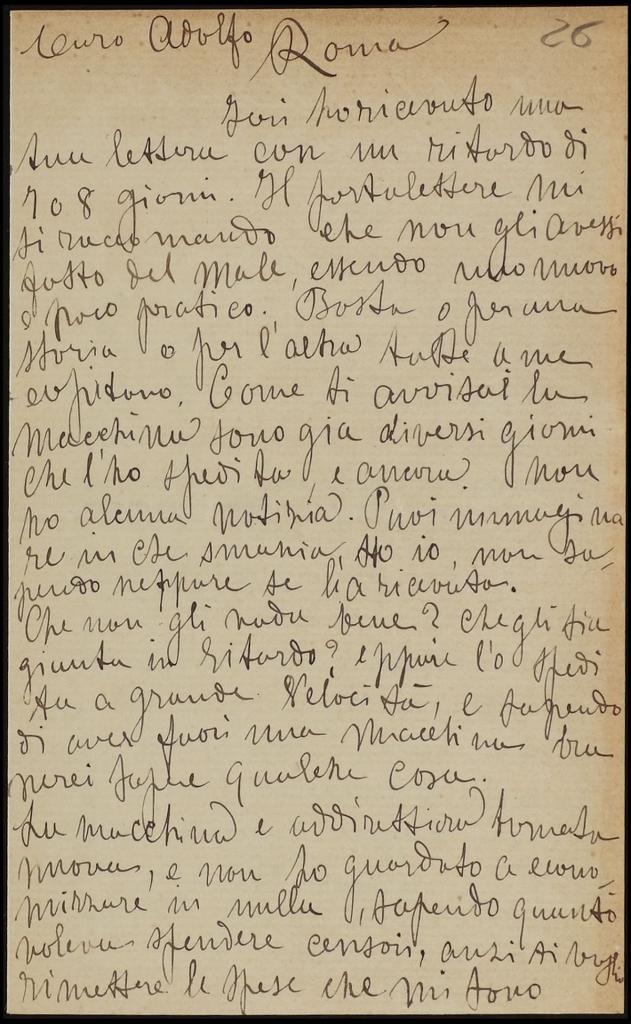 Curo Adolfo Roma 26
Ieri ho ricevuto una
tua lettera con un ritardo di
7 o 8 giorni. Il portalettere mi
si raccomando che non gli avessi
fatto del Male, essendo uno nuovo
e poco pratico. Basta o per una
storia o per l'altra tutte a me
capitano. Come ti avvisai la
Macchina sono gia diversi giorni
che l'ho spedita, e ancora non
ho alcuna notizia. Puoi immagina
re in che smania, sto io, non sa,
pendo neppure se l'ha ricevuta.
Che non gli vada bene? che gli sia
giunta in ritardo? eppure l'o spedi
ta a grande Velocità, e sapendo
di aver fuori una Macchina bra
merei sapere qualche cosa.
La macchina e addirittura tornata
nuova, e non ho guardato a econo,
mizzare in nulla, sapendo quanto
voleva spendere, anzi ti voglio
rimettere le spese che mi sono